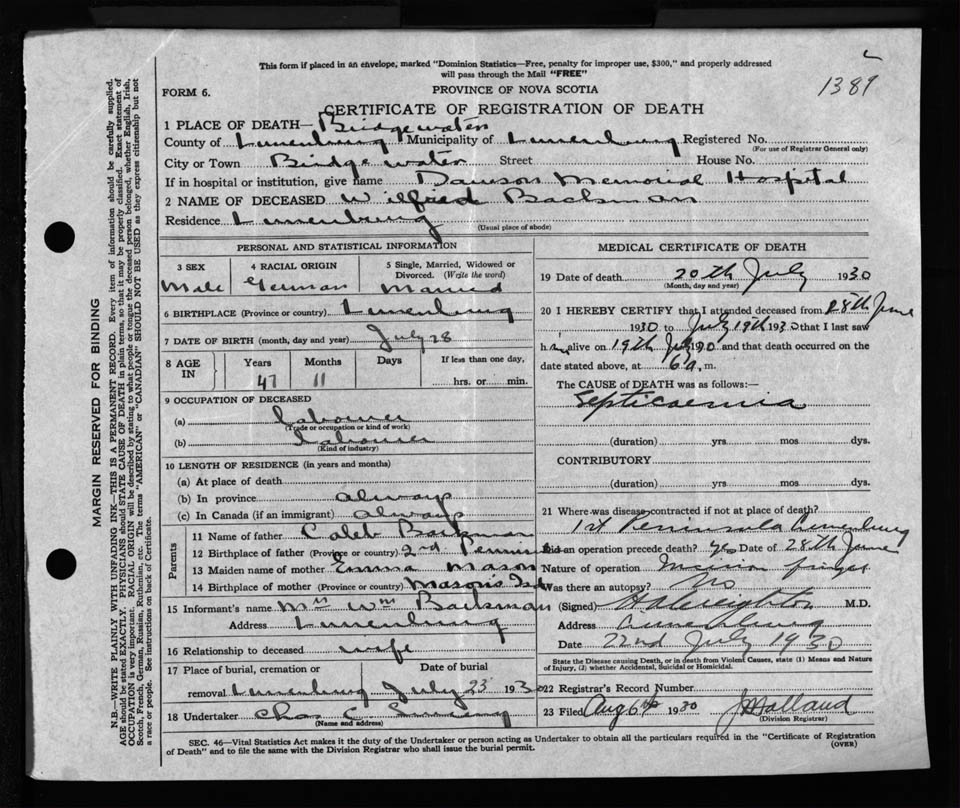 This form if placed in an envelope, marked "Dominion Statistics—Free, penalty for improper use, $300," and properly addressed
will pass through the Mail "FREE"
1389
FORM 6.
PROVINCE OF NOVA SCOTIA
CERTIFICATE OF REGISTRATION OF DEATH
1 PLACE OF DEATH— Bridgewater
County of Lunenburg Municipality of Lunenburg Registered No.
(For use of Registrar General only)
City or Town Bridgewater Street House No.
If in hospital or institution, give name Dawson Memorial Hospital
2 NAME OF DECEASED Wilfred Backman
Residence Lunenburg
(Usual place of abode)
PERSONAL AND STATISTICAL INFORMATION
3 SEX 4 RACIAL ORIGIN 5 Single, Married, Widowed or
Divorced. (Write the word)
Male German Married
6 BIRTHPLACE (Province or country) Lunenburg
7 DATE OF BIRTH (month, day and year) July 28
8 AGE IN Years Months Days If less than one day,
47 11 hrs. or min.
9 OCCUPATION OF DECEASED
(a) Labourer
(Trade or occupation or kind of work)
(b) Labourer
(Kind of industry)
10 LENGTH OF RESIDENCE (in years and months)
(a) At place of death
(b) In province always
(c) In Canada (if an immigrant) always
Parents
11 Name of father Caleb Backman
12 Birthplace of father (Province or country) 2nd Penins
13 Maiden name of mother Emma Mason
14 Birthplace of mother (Province or country) Mason's Isd
15 Informant's name Mrs Wm Backman
Address Lunenburg
16 Relationship to deceased wife
17 Place of burial, cremation or Date of burial
removal Lunenburg July 23 1930
18 Undertaker Chas C
(Name and address)
MEDICAL CERTIFICATE OF DEATH
19 Date of death 20th July 1930
(Month, day and year)
20 I HEREBY CERTIFY that I attended deceased from 28th June
1930 to July 19th 1930 that I last saw
him alive on 19th July 1930 and that death occurred on the
date stated above, at 6 a. m.
The CAUSE OF DEATH was as follows:—
Septicaemia
(duration) yrs mos dys.
CONTRIBUTORY
(duration) yrs mos dys.
21 Where was disease contracted if not at place of death?
1st Peninsula Lunenburg
Did an operation precede death? yes Date of 28th June
Nature of operation Incision finger
Was there an autopsy? No
(Signed) M.D.
Address Lunenburg
Date 22nd July 1930
State the Disease causing Death, or in death from Violent Causes, state (1) Means and Nature
of Injury, (2) whether Accidental, Suicidal or Homicidal.
22 Registrar's Record Number
23 Filed Aug 6th 1930 J Holland
(Division Registrar)
SEC. 46—Vital Statistics Act makes it the duty of the Undertaker or person acting as Undertaker to obtain all the particulars required in the "Certificate of Registration
of Death" and to file the same with the Division Registrar who shall issue the burial permit.
(OVER)
MARGIN RESERVED FOR BINDING
N.B.—WRITE PLAINLY WITH UNFADING INK—THIS IS A PERMANENT RECORD. Every item of information should be carefully supplied.
AGE should be stated EXACTLY. PHYSICIANS should STATE CAUSE OF DEATH in plain terms, so that it may be properly classified. Exact statement of
OCCUPATION is very important. RACIAL ORIGIN will be described by stating to what people or tongue the deceased person belonged, whether English, Irish,
Scotch, French, German, Russian, Ruthenian, etc. The terms "AMERICAN" or "CANADIAN" SHOULD NOT BE USED as they express citizenship but not
a race or people. See instructions on back of Certificate.